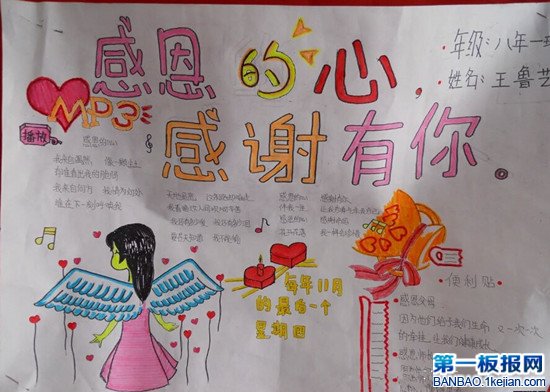 感恩的心,
感谢有你
年级:八年一班
姓名:王鲁艺
MP3
播放
感恩的心
我来自偶然 像一颗尘土
有谁看出我的脆弱
我来自何方 我情归何处
谁在下一刻呼唤我
天地虽宽 这条路却难走
我看遍这人间坎坷辛苦
我还有多少爱 我还有多少泪
要苍天知道 我不认输
感恩的心
感谢有你
伴我一生
让我有勇气做我自己
感恩的心
感谢命运
花开花落
我一样会珍惜
每年11月
的最后一个
星期四
便利贴
感恩父母
因为他们给予我们生命
第一板报网
BANBAO.1kejian.com